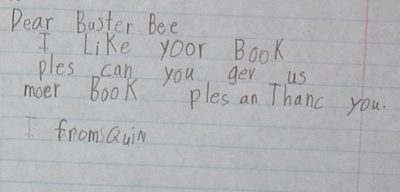 Dear Buster Bee
I Like yoor Book
ples can you gev us
moer Book ples an Thanc you.
I fromsQuiN